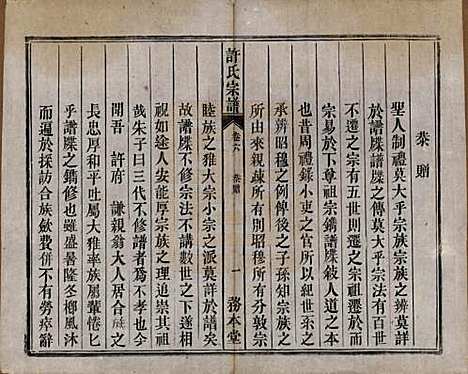 恭贈
聖人制禮莫大乎宗族宗族之辨莫詳
於譜牒譜牒之傳莫大乎宗法有百世
不遷之宗有五世則遷之宗祖遷於上
宗易於下尊祖宗鐫譜牒彼人道之
也昔周禮錄小吏之官所以紀世系之
承辨昭穆之例俾後之子孫知宗族之
所由來親疎所有別昭穆所有分敦宗
許氏宗譜
卷六 恭贈 一 務本堂
睦族之雅大宗小宗之派莫詳於譜矣
故譜牒不修宗法不講數世之之大不
親如途人安能厚宗族之理追崇其祖
哉朱子曰三代不修譜者為不孝也今
閒吾 許府 謙親翁大人居合族之
長忠厚和平吐屬大雅率族屬輩惓匕
乎譜牒之鐫修也雖盛暑隆冬櫛風沐
而遑於採訪合族斂費併不有勞瘁辭